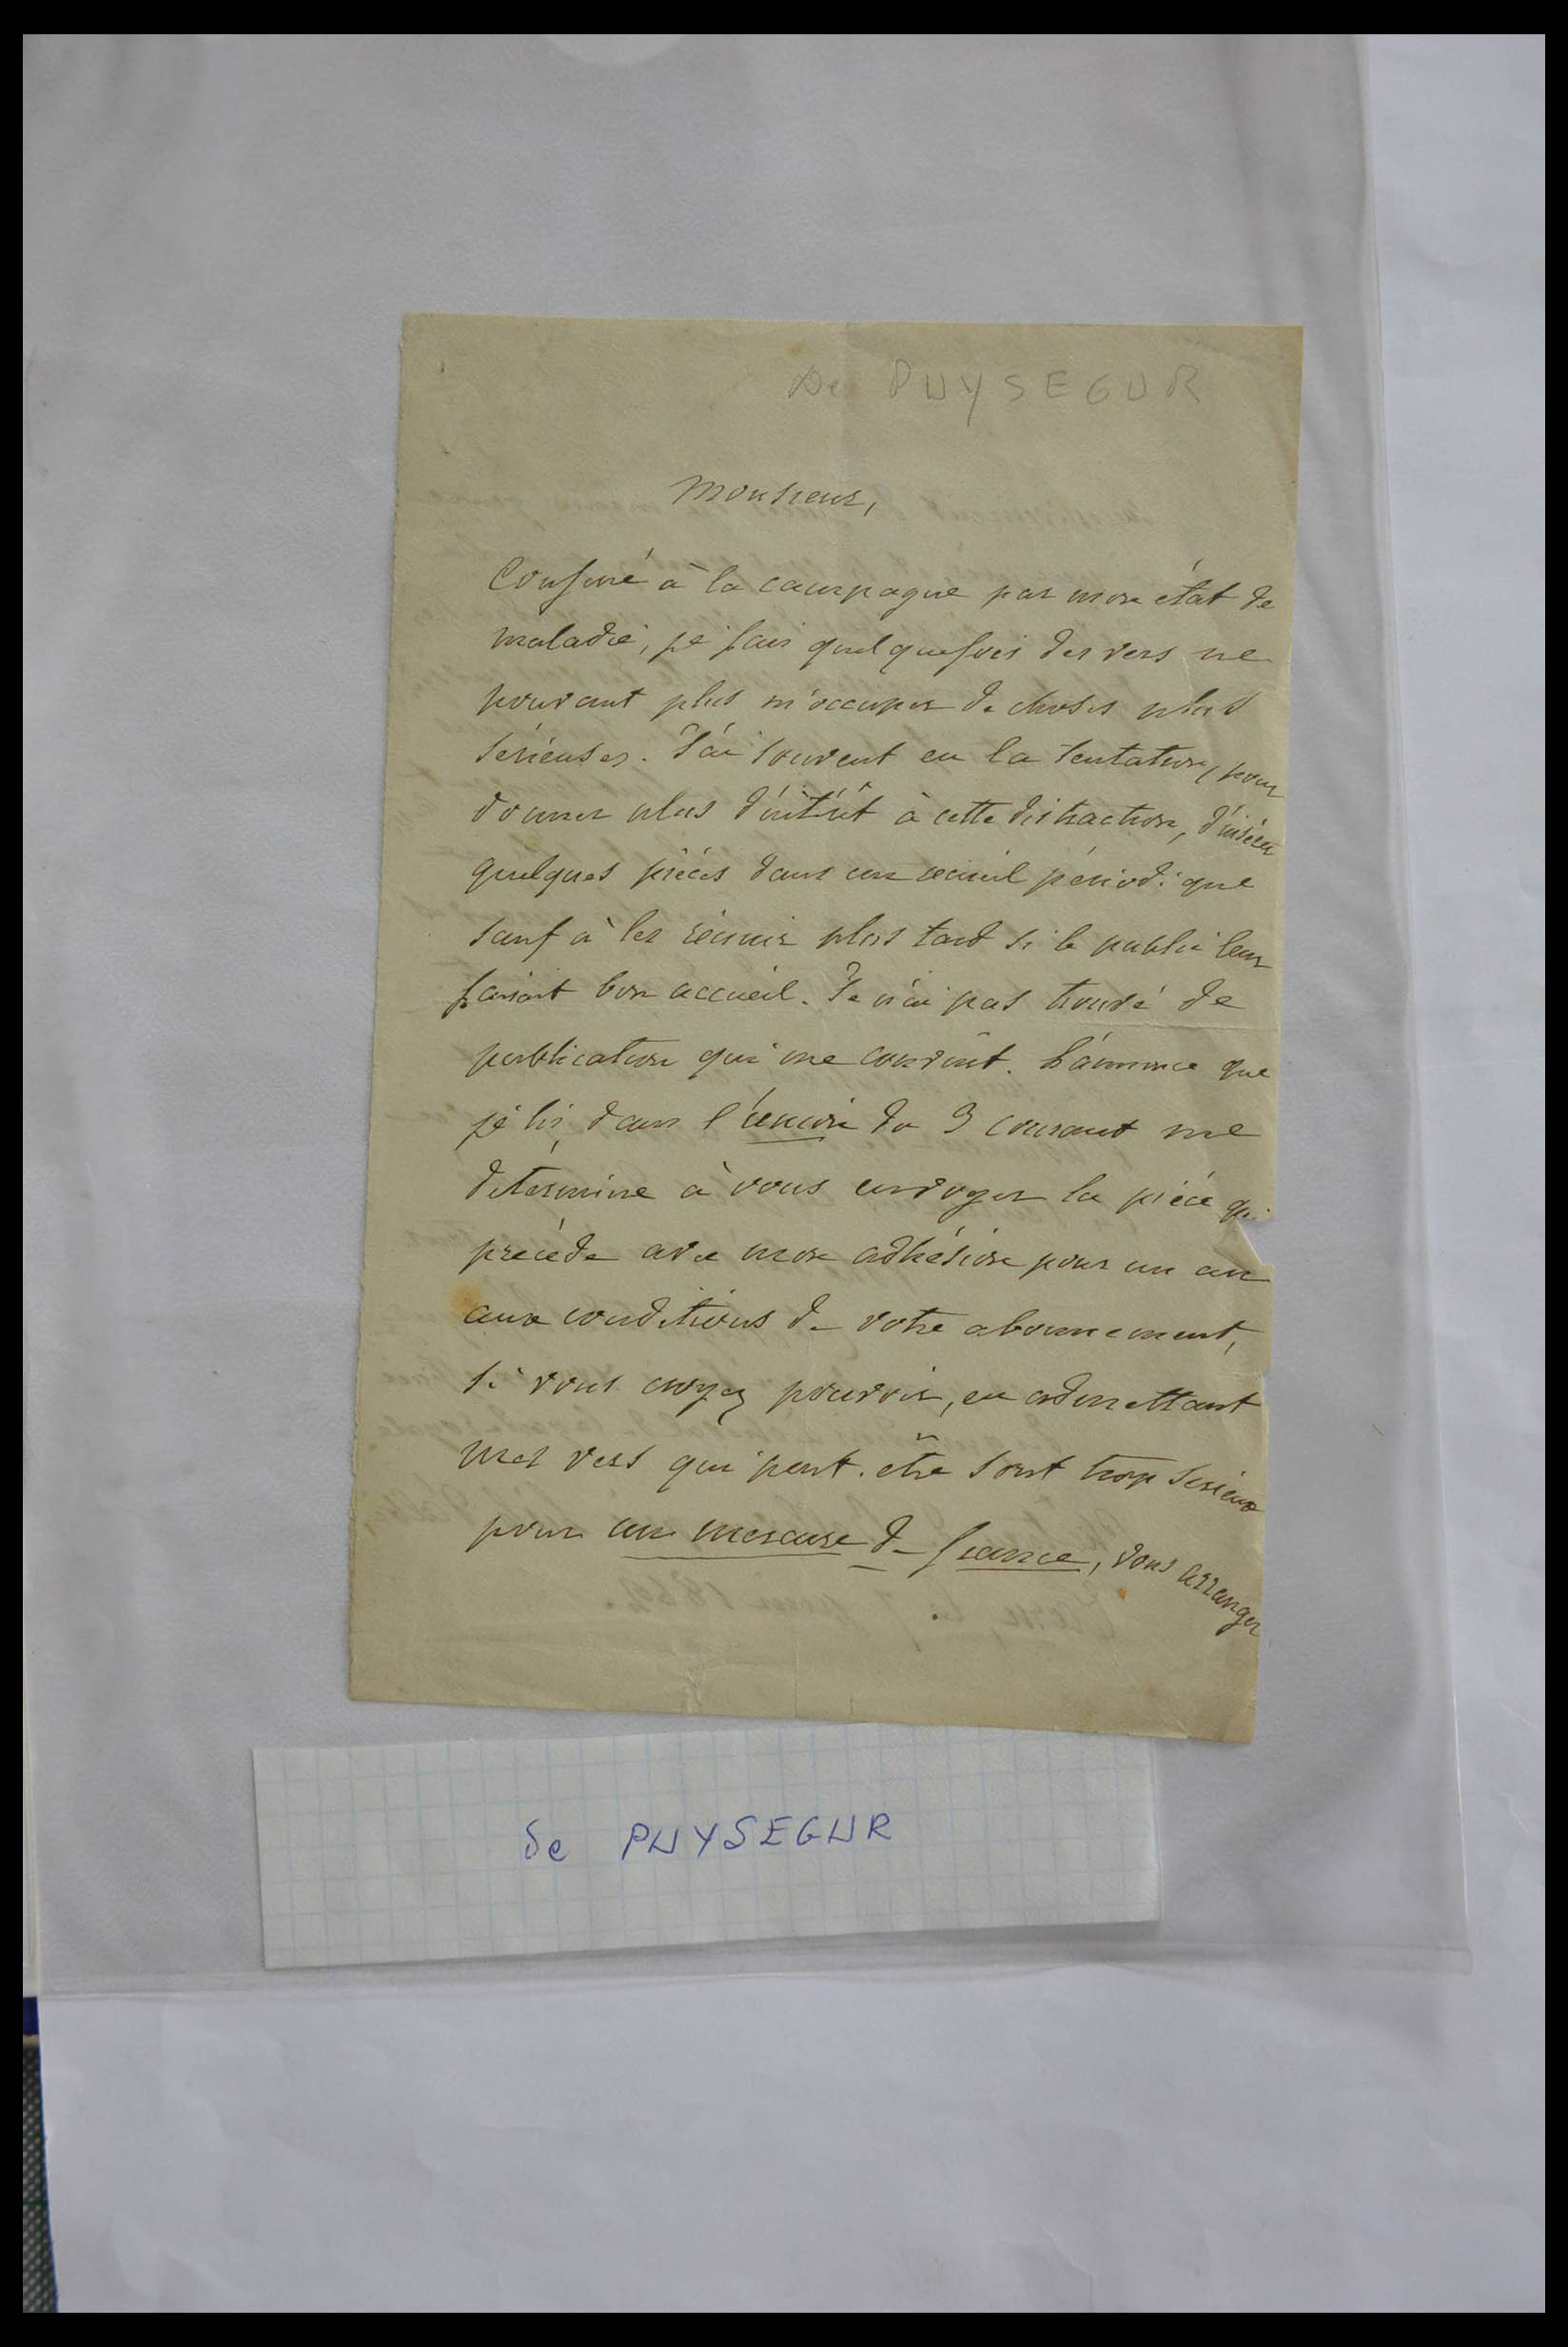 De PUYSEGUR
Monsieur,
Confiné à la campagne par mon état de
maladie, je fais quelquefois des vers ne
pouvant plus m'occuper de choses plus
sérieuses. J'ai souvent eu la tentation, pour
donner plus d'intérêt à cette distraction, d'insérer
quelques pièces dans un recueil périodique
sauf à les réunir plus tard si le public leur
faisait bon accueil. Je n'ai pas trouvé de
publication qui me convint. L'annonce que
je lis dans l'union du 3 courant me
détermine à vous envoyer la pièce qui
précède avec mon adhésion pour un an
aux conditions de votre abonnement,
si vous croyez pouvoir, en admettant
mes vers qui peut-être sont trop sérieux
pour un mercure de france, vous arranger
de PUYSEGUR